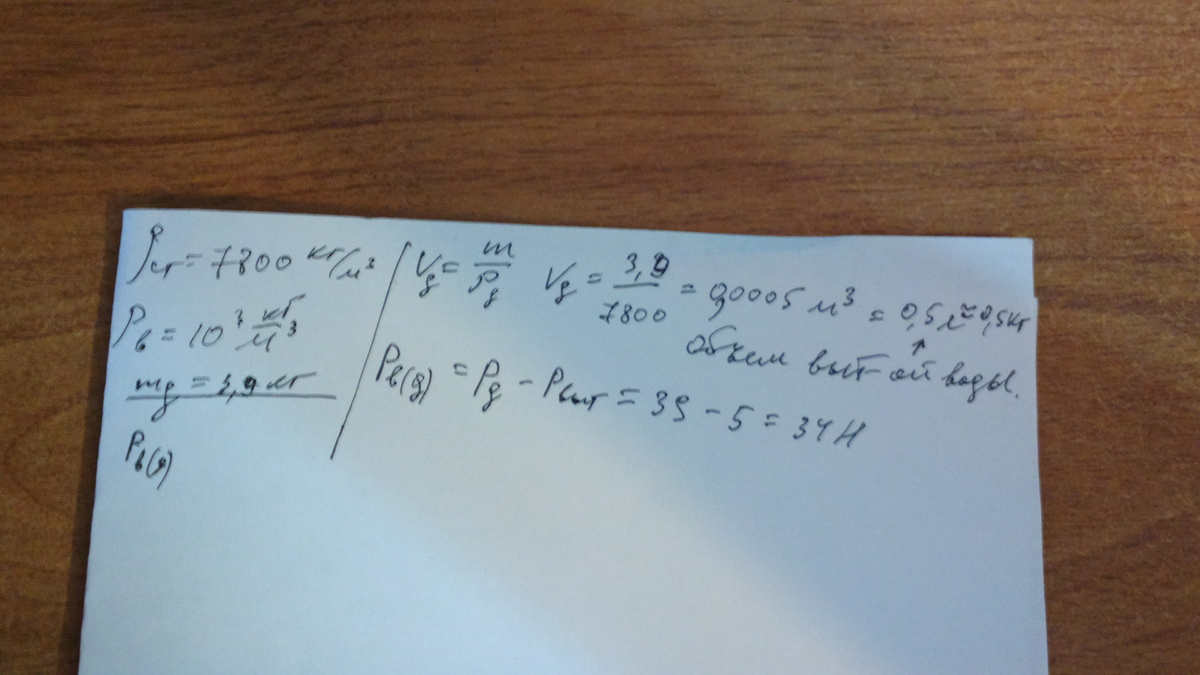 ρст = 7800 кг/м³
ρв = 10³ кг/м³
mд = 3,9 кг
Pв(д)
Vд = m/ρд Vд = 3,9/7800 = 0,0005 м³ = 0,5 л ≈ 0,5 кг
↑
объем выт ой воды.
Pв(д) = Pд - Pвыт = 39 - 5 = 34 Н